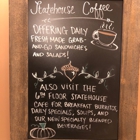 Statehouse Coffee
Offering Daily
Fresh made grab
and go sandwiches
and salads!
Also visit the
6th floor Statehouse
Cafe for breakfast burritos,
daily specials, soups, and
our new specialty blended
beverages!